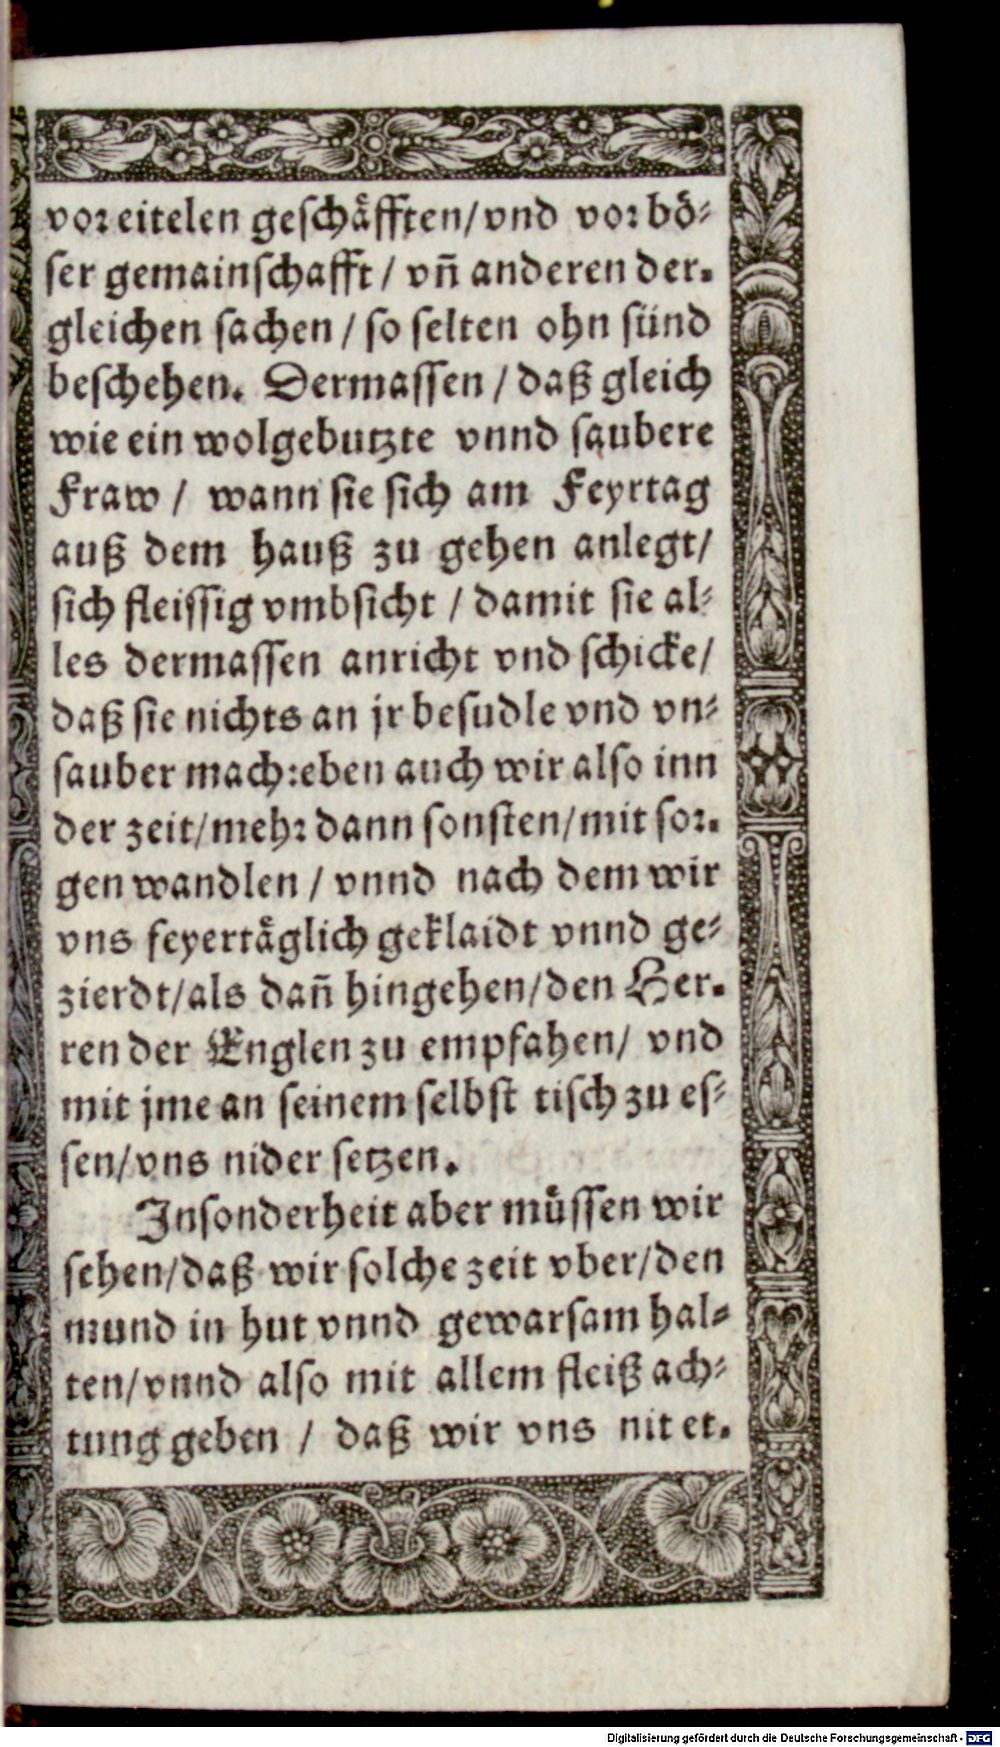 vor eitelen geschaͤfften/vnd vor boͤ-
ser gemainschafft / vn̄ anderen der-
gleichen sachen / so selten ohn sünd
beschehen. Dermassen / daß gleich
wie ein wolgebutzte vnnd saubere
Fraw / wann sie sich am Feyrtag
auß dem hauß zu gehen anlegt/
sich fleissig vmbsicht / damit sie al-
les dermassen anricht vnd schicke/
daß sie nichts an jr besudle vnd vn-
sauber mach:eben auch wir also inn
der zeit/mehr dann sonsten/mit sor-
gen wandlen / vnnd nach dem wir
vns feyertaͤglich geklaidt vnnd ge-
zierdt/als dan̄ hingehen/den Her-
ren der Englen zu empfahen/ vnd
mit jme an seinem selbst tisch zu es-
sen/vns nider setzen.
Insonderheit aber muͤssen wir
sehen/daß wir solche zeit vber/den
mund in hut vnnd gewarsam hal-
ten/vnnd also mit allem fleiß ach-
tung geben / daß wir vns nit et-
Digitalisierung gefördert durch die Deutsche Forschungsgemeinschaft - DFG